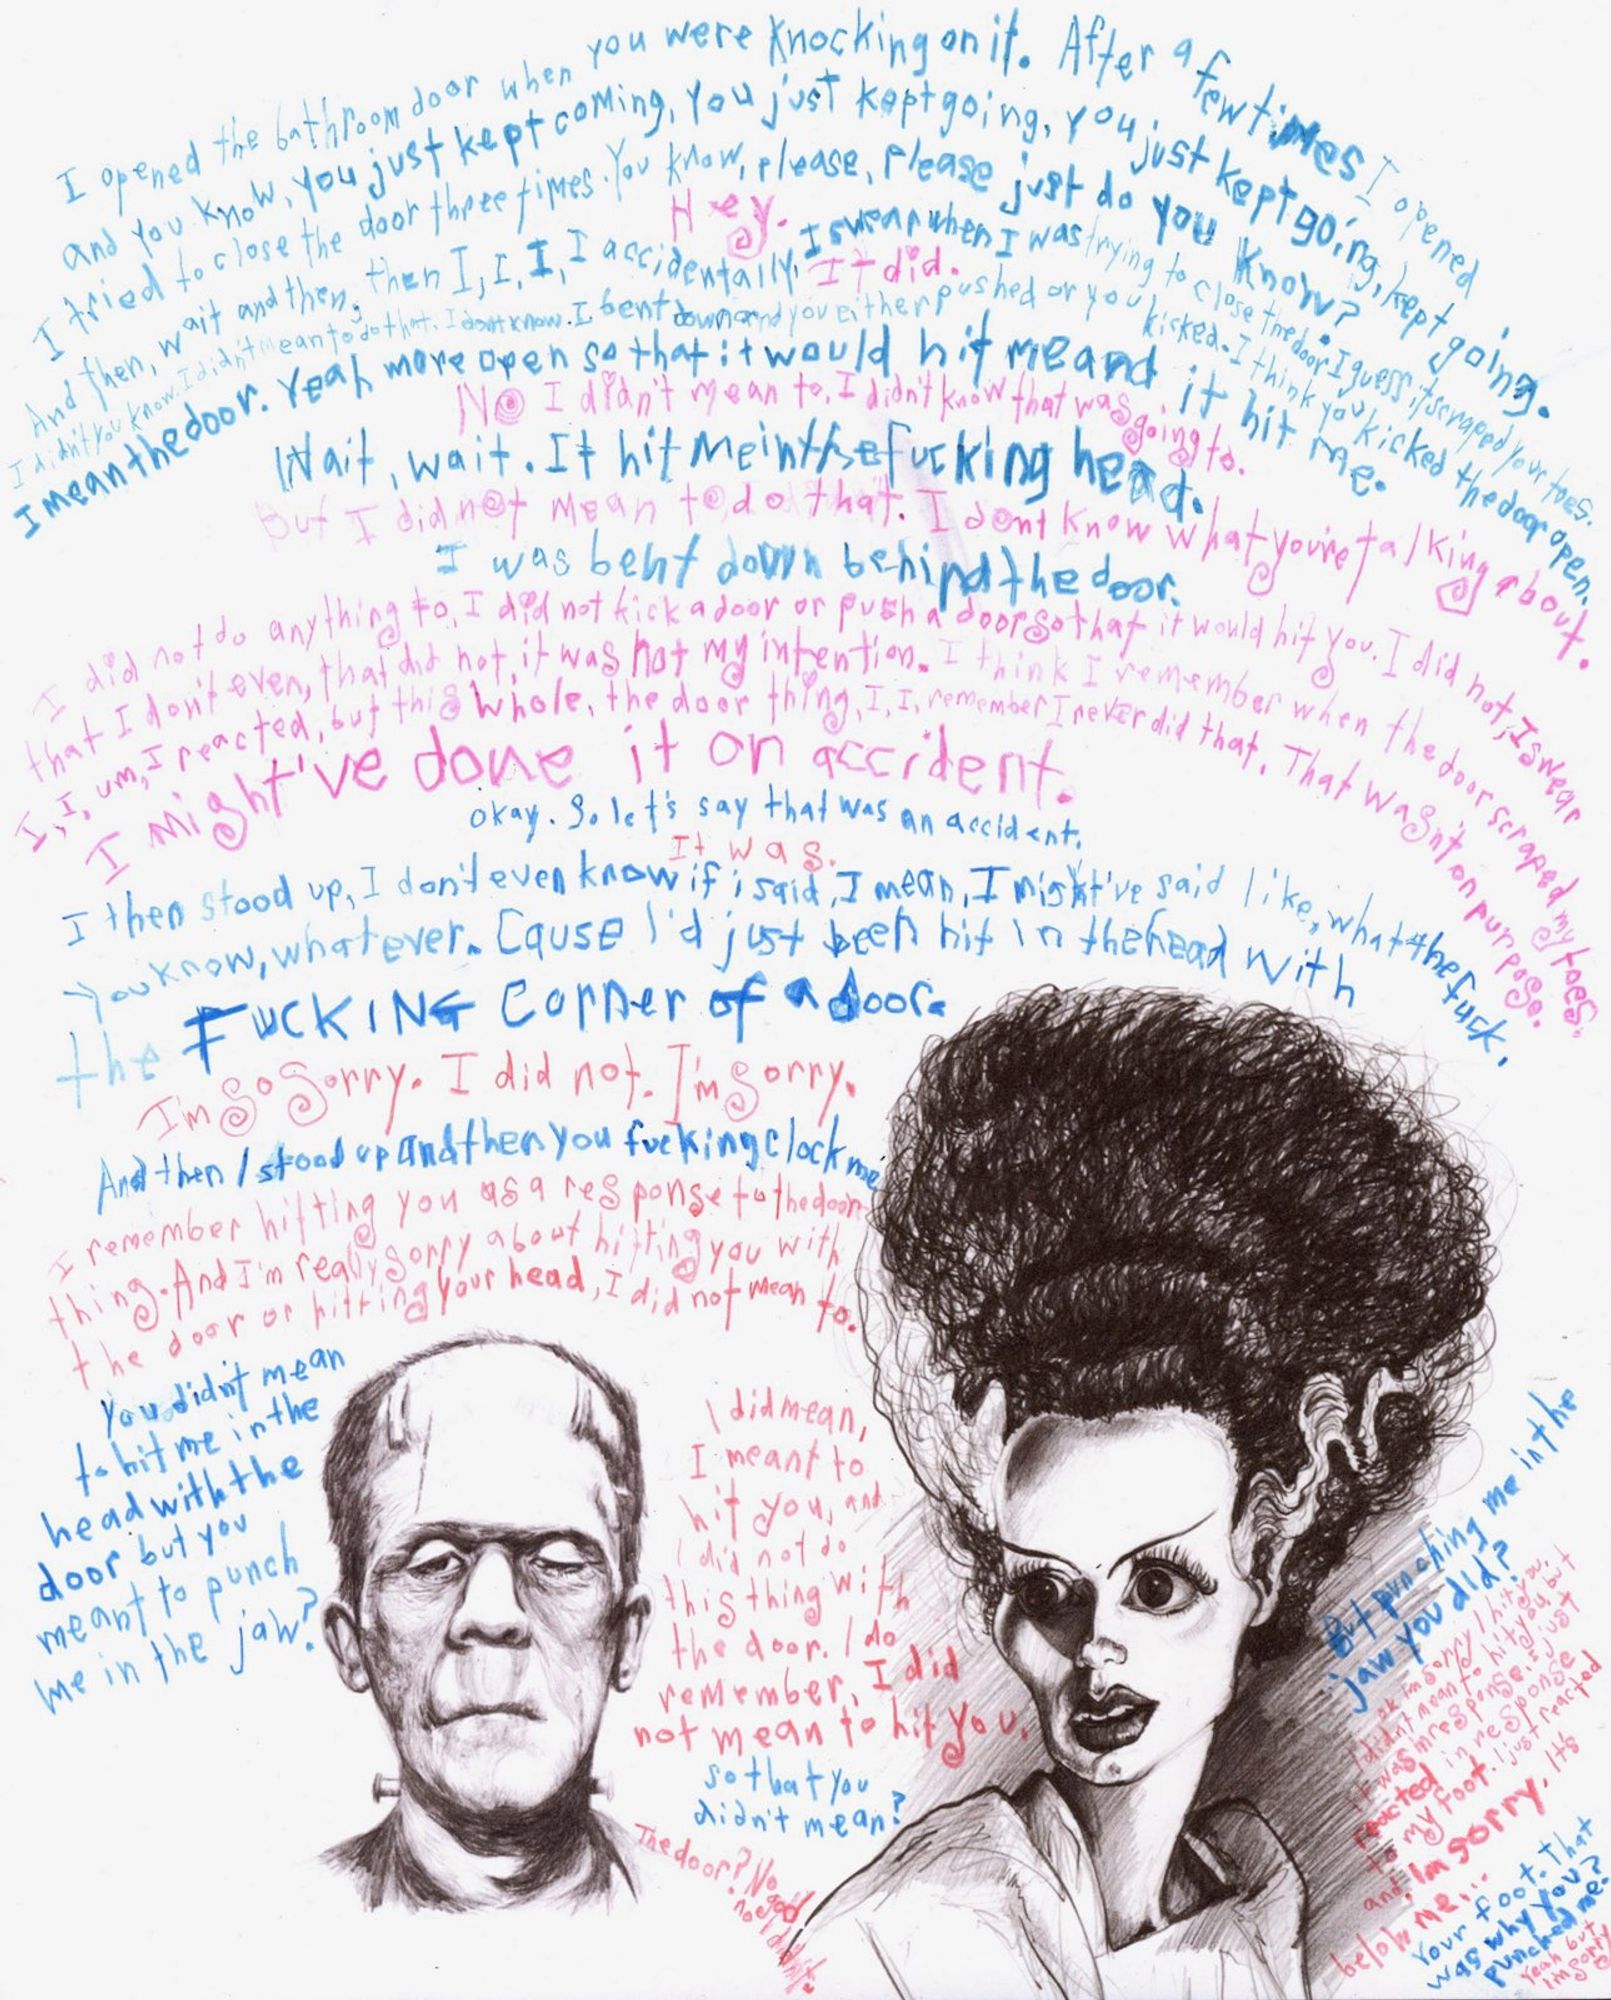 I opened the bathroom door when you were knocking on it. After a few times I opened
and you know, you just kept coming, you just kept going, you just kept going, kept going.
I tried to close the door three times. You know, please, please just do you know?
Hey.
And then, wait and then, then I, I, I, I accidentally, I swear when I was trying to close the door I guess it scraped your toes.
It did.
I didn't you know. I didn't mean to do that. I don't know. I bent down and you either pushed or you kicked. I think you kicked the door open.
I mean the door. Yeah more open so that it would hit me and it hit me.
No I didn't mean to, I didn't know that was going to.
Wait, wait. It hit me in the fucking head.
But I did not mean to do that. I dont know what you're talking about.
I was bent down behind the door.
I did not do anything to, I did not kick a door or push a door so that it would hit you. I did not, I swear
that I don't even, that did not, it was not my intention. I think I remember when the door scraped my toes.
I, I, um, I reacted, but this whole, the door thing, I, I, remember I never did that. That wasn't on purpose.
I might've done it on accident.
okay. So let's say that was an accident.
It was.
I then stood up, I don't even know if i said, I mean, I might've said like, what the fuck,
You know, whatever. Cause I'd just been hit in the head with
the FUCKING corner of a door.
I'm so sorry. I did not. I'm sorry.
And then I stood up and then you fucking clock me
I remember hitting you as a response to the door
thing. And I'm really sorry about hitting you with
the door or hitting your head, I did not mean to.
You didn't mean
to hit me in the
head with the
door but you
meant to punch
me in the jaw?
I did mean,
I meant to
hit you, and
I did not do
this thing with
the door. I do
remember, I did
not mean to hit you.
so that you
didn't mean?
The door? No
no god
I didn't.
But punching me in the
jaw you did?
ok I'm sorry I hit you,
I didn't mean to hit you, but
it was in response. I just
reacted in response
to my foot. I just reacted
and, I'm sorry, it's
below me...
Your foot. That
was why you
punched me?
Yeah but
I'm sorry